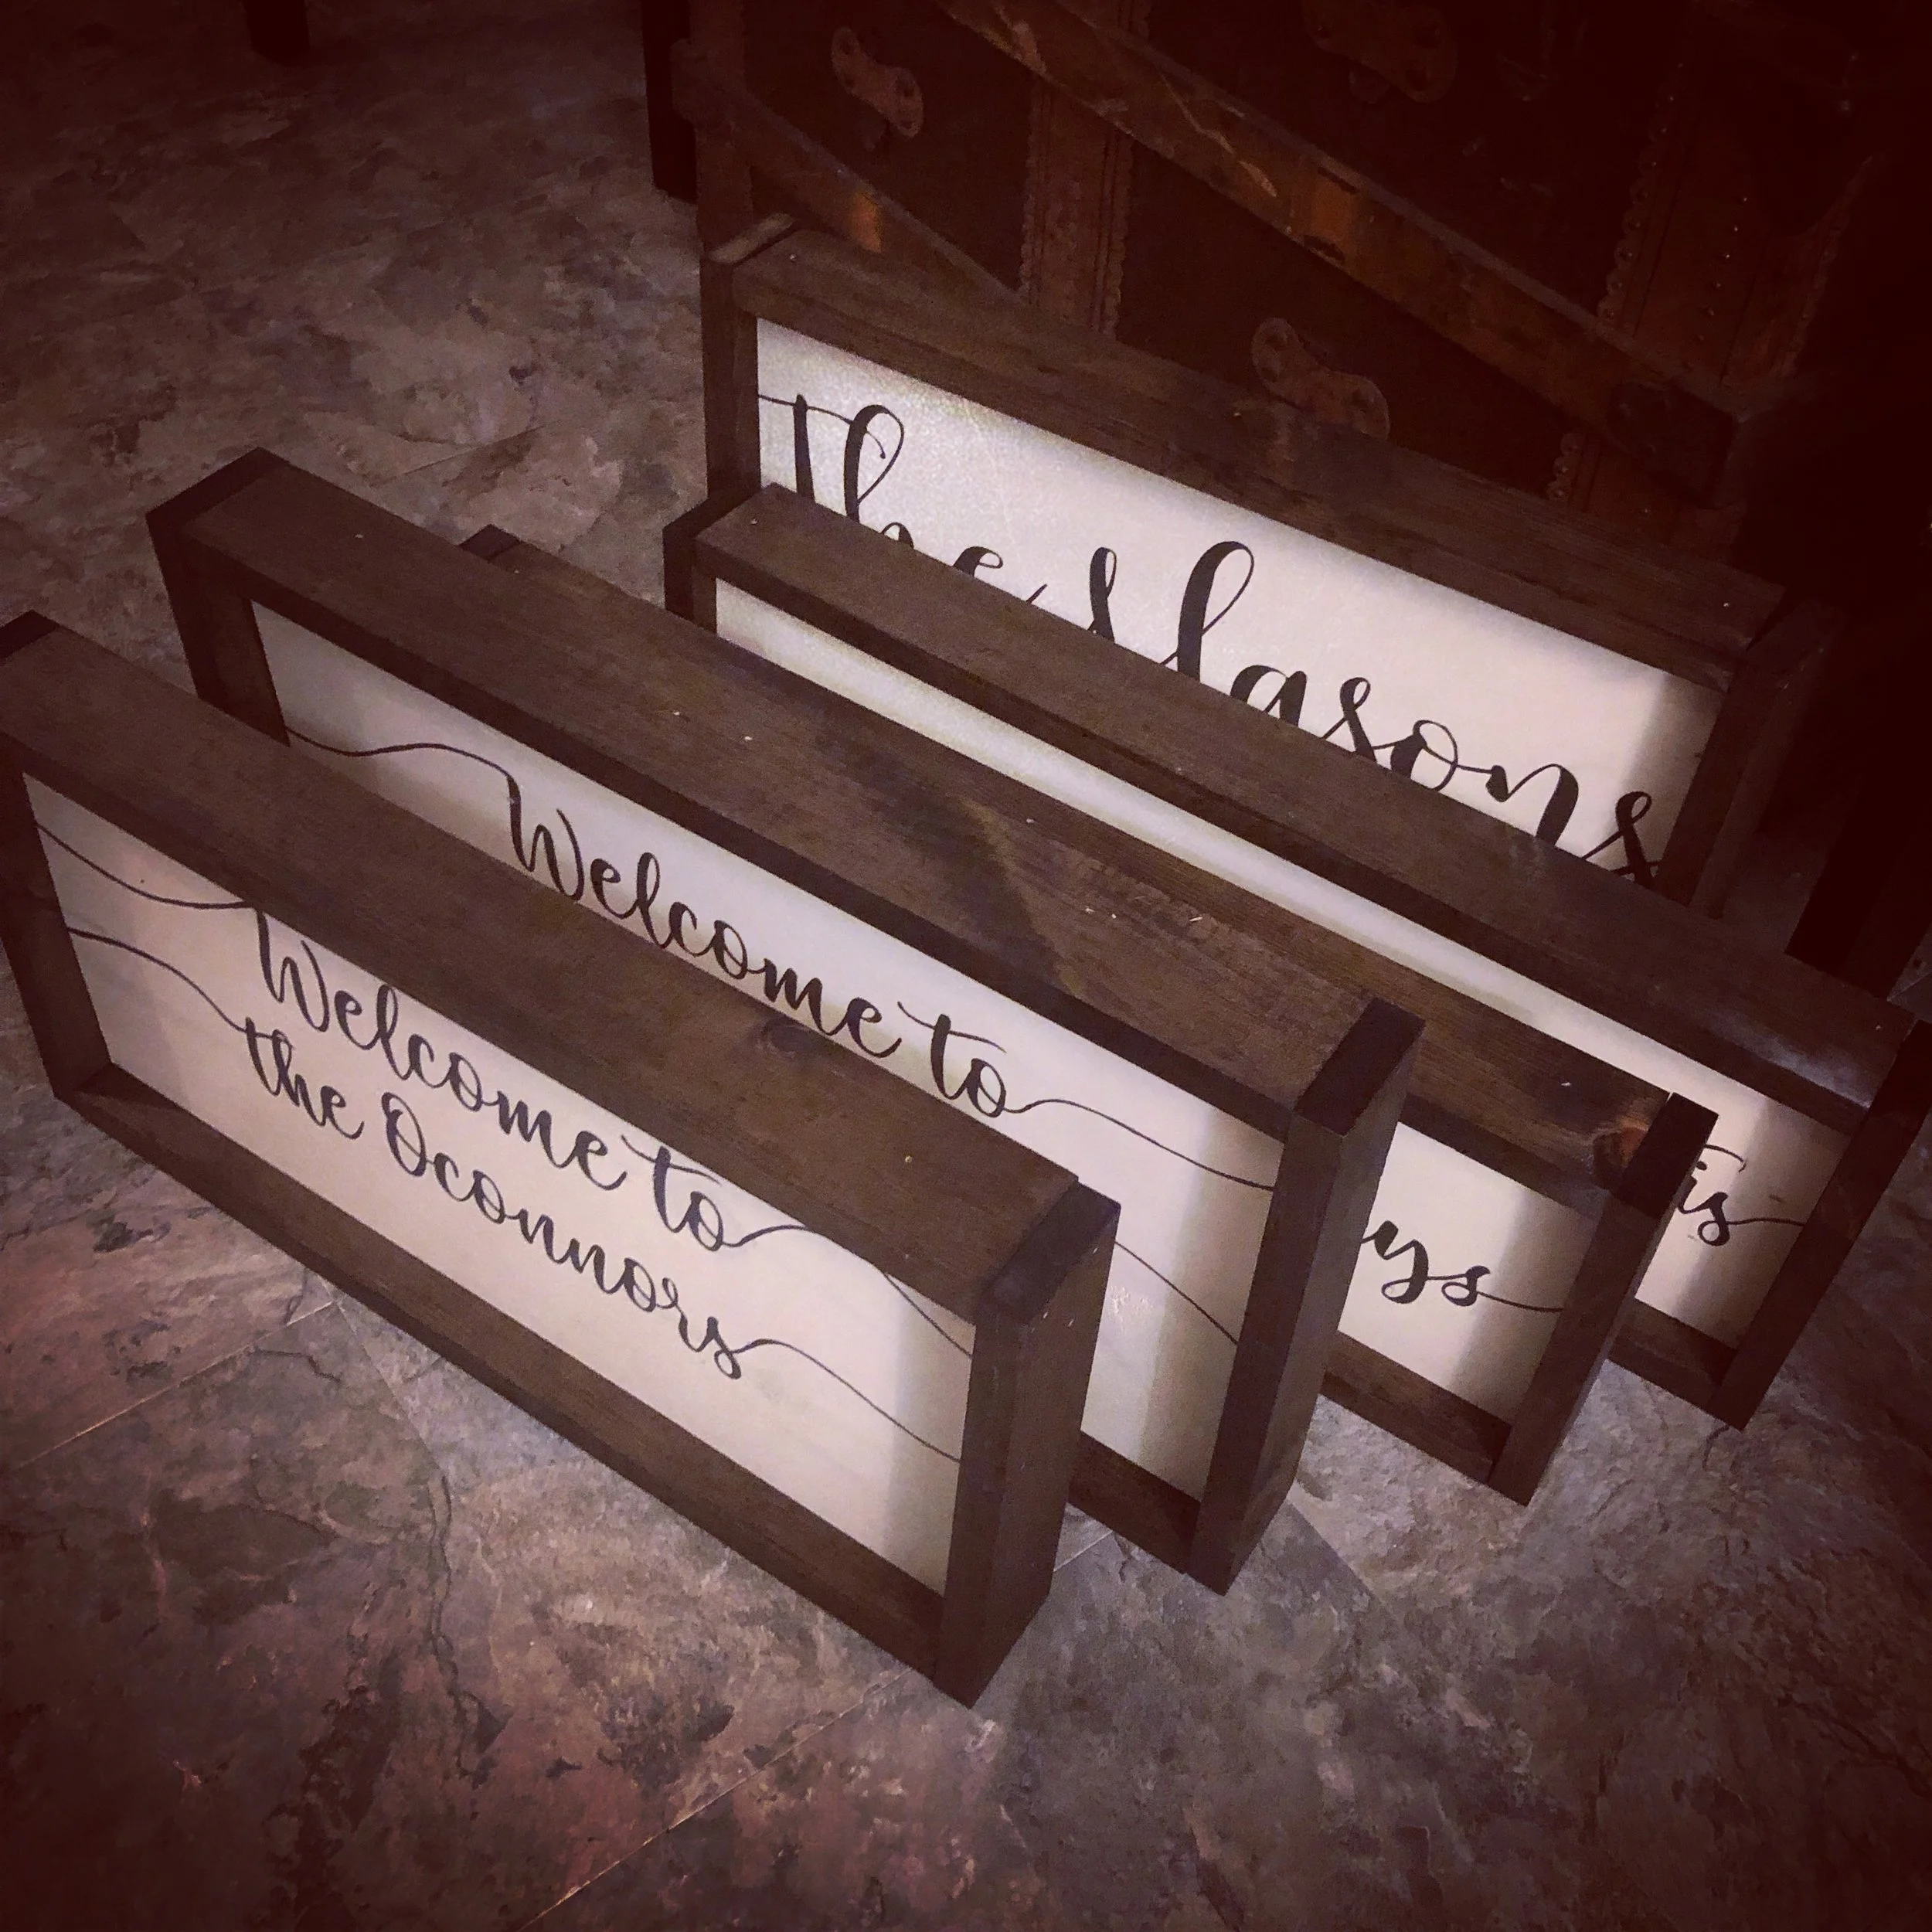 the Masons
Welcome to
Welcome to
the Oconnors
ys
is